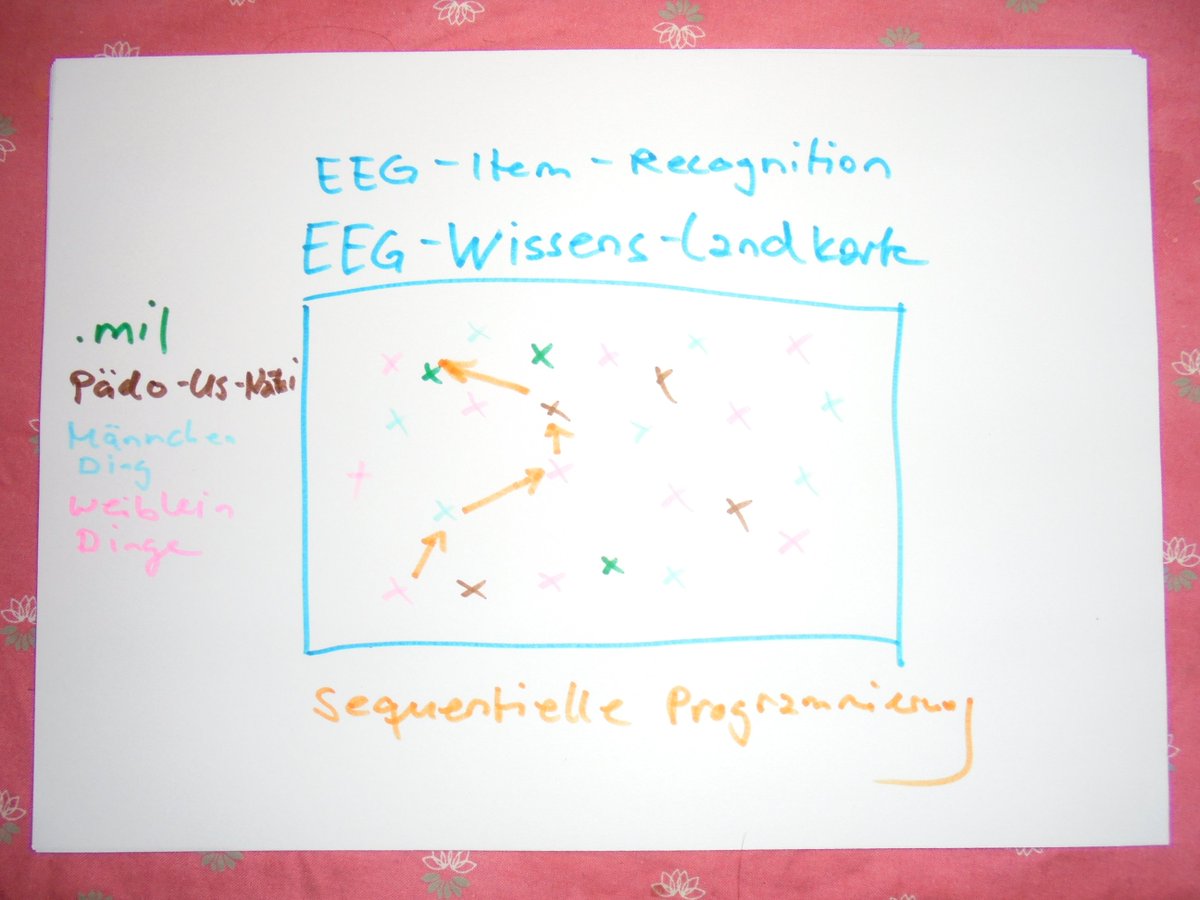 EEG-Item-Recognition
EEG-Wissens-Landkarte
.mil
Pädo-US-Nazi
Männchen
Ding
Weiblein
Dinge
Sequentielle Programmierung